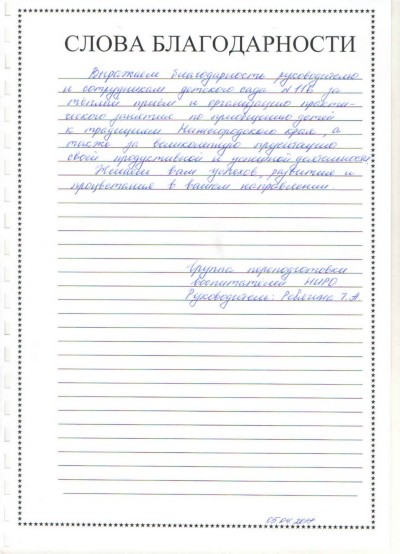 СЛОВА БЛАГОДАРНОСТИ
Выражаем благодарность руководителю
и сотрудникам детского сада №116 за
теплый прием и организацию практи-
ческого занятия по приобщению детей
к традициям Нижегородского края, а
также за великолепную презентацию
своей продуктивной и успешной деятельности.
Желаем вам успехов, развития и
процветания в вашем направлении.
Группа переподготовки
воспитателей НИРО
Руководитель: Ревягина Т.А.
05.04.2017